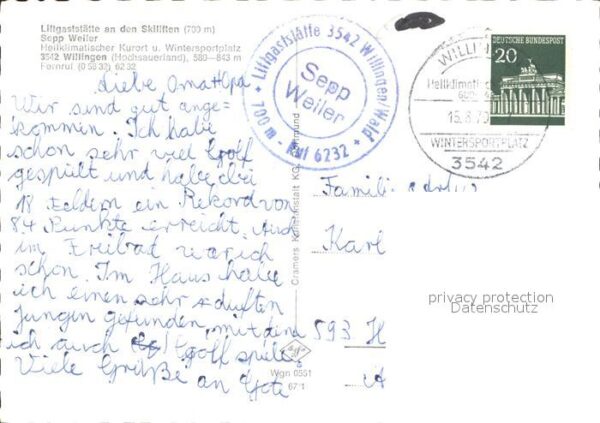 Liftgaststätte an den Skiliften (700 m)
Sepp Weiler
Heilklimatischer Kurort u. Wintersportplatz
3542 Willingen (Hochsauerland), 580—843 m
Fernruf. (0 56 32) 62 32
Liebe Oma+Opa
Wir sind gut ange=
kommen. Ich habe
schon sehr viel Golf
gespielt und habe bei
18 Feldern ein Rekord von
84 Punkte erreicht. Auch
im Freibad war ich
schon. Im Haus habe
ich einen sehr dufften
Jungen gefunden, mit dem
ich auch Golf spiele.
Viele Grüße an
Liftgaststätte 3542 Willingen/Wald
Sepp
Weiler
700 m - Ruf 6232
DEUTSCHE BUNDESPOST
20
WILLIN
Heilklimatisch
WINTERSPORTPLATZ
3542
Cramers Kunstanstalt KG, Dortmund
Wgn 0551
67 1
Famili
Karl
593 H
privacy protection
Datenschutz